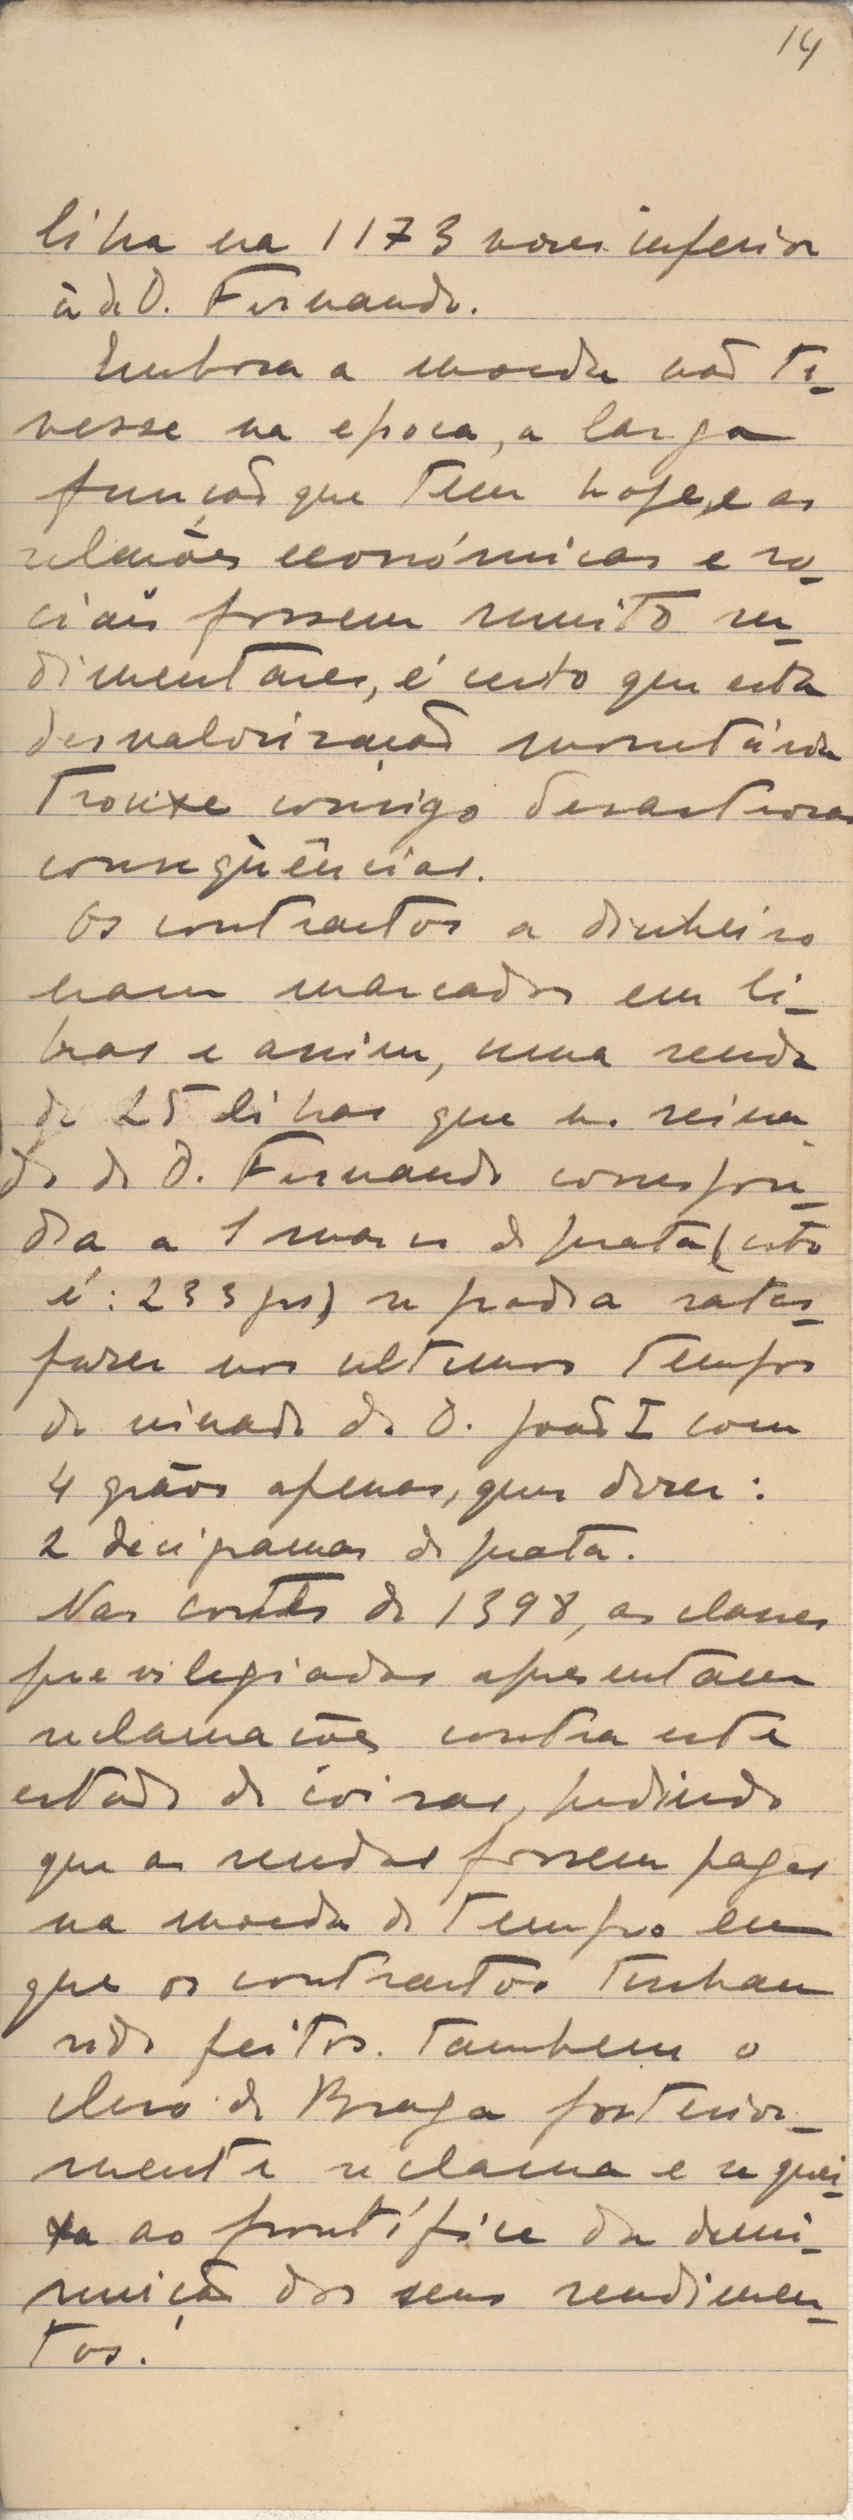 14
libra era 1173 vezes inferior
à de D. Fernando.
Embora a moeda não ti-
vesse na epoca, a larga
função que tem hoje, e as
relações económicas e so-
ciais fossem muito ru-
dimentares, é certo que esta
desvalorização monetária
trouxe consigo desastrosas
conseqüências.
Os contractos a dinheiro
eram marcados em li-
bras e assim, uma renda
de 25 libras que no reina
do de D. Fernando correspon-
dia a 1 marco de prata (isto
é: 233 grs) se podia satis-
fazer nos ultimos tempos
do reinado de D. João I com
4 grãos apenas, quer dizer:
2 decigramas de prata.
Nas cortes de 1398, as classes
previlegiadas apresentam
reclamações contra este
estado de coisas, pedindo
que as rendas fossem pagas
na moeda do tempo em
que os contractos tinham
sido feitos. Tambem o
clero de Braga posterior-
mente reclama e se quei-
xa ao pontífice da demi-
nuição dos seus rendimen-
tos.